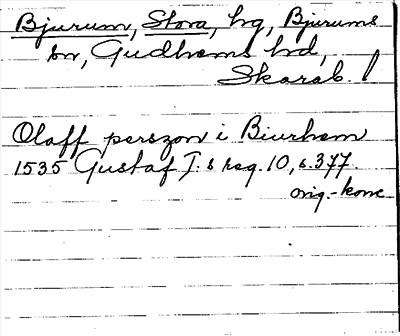 Bjurum, Stora, hg, Bjurums
sn, Gudhems hd,
Skarab. l
Olaff perszon i Biurhem
1535 Gustaf I:s reg. 10, s. 377.
orig.-konc